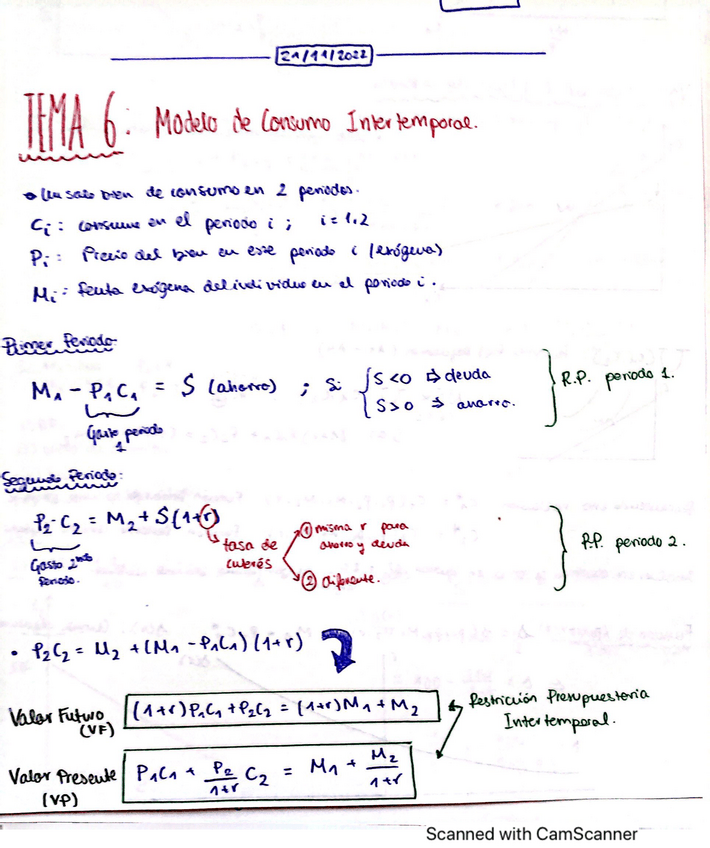 21/11/2022
TEMA 6: Modelo de Consumo Intertemporal.
Un solo bien de consumo en 2 periodos.
Ci: consumo en el periodo i; i=1,2
Pi: Precio del bien en ese periodo i (exógeno)
Mi: Renta exógena del individuo en el periodo i.
Primer Periodo
M1 - P1C1 = S (ahorro) ; Si { S<0 ⇒ deuda
S>0 ⇒ ahorro.
} R.P. periodo 1.
Gasto periodo
1
Segundo Periodo:
P2·C2 = M2 + S(1+r)
Gasto 2ndo
Periodo.
tasa de
interés
① misma r para
ahorro y deuda
② diferente.
} R.P. periodo 2.
• P2C2 = M2 + (M1 - P1C1)(1+r)
Valor Futuro
(VF)
(1+r)P1C1 + P2C2 = (1+r)M1 + M2
Restricción Presupuestaria
Intertemporal.
Valor Presente
(VP)
P1C1 + P2/1+r C2 = M1 + M2/1+r
Scanned with CamScanner